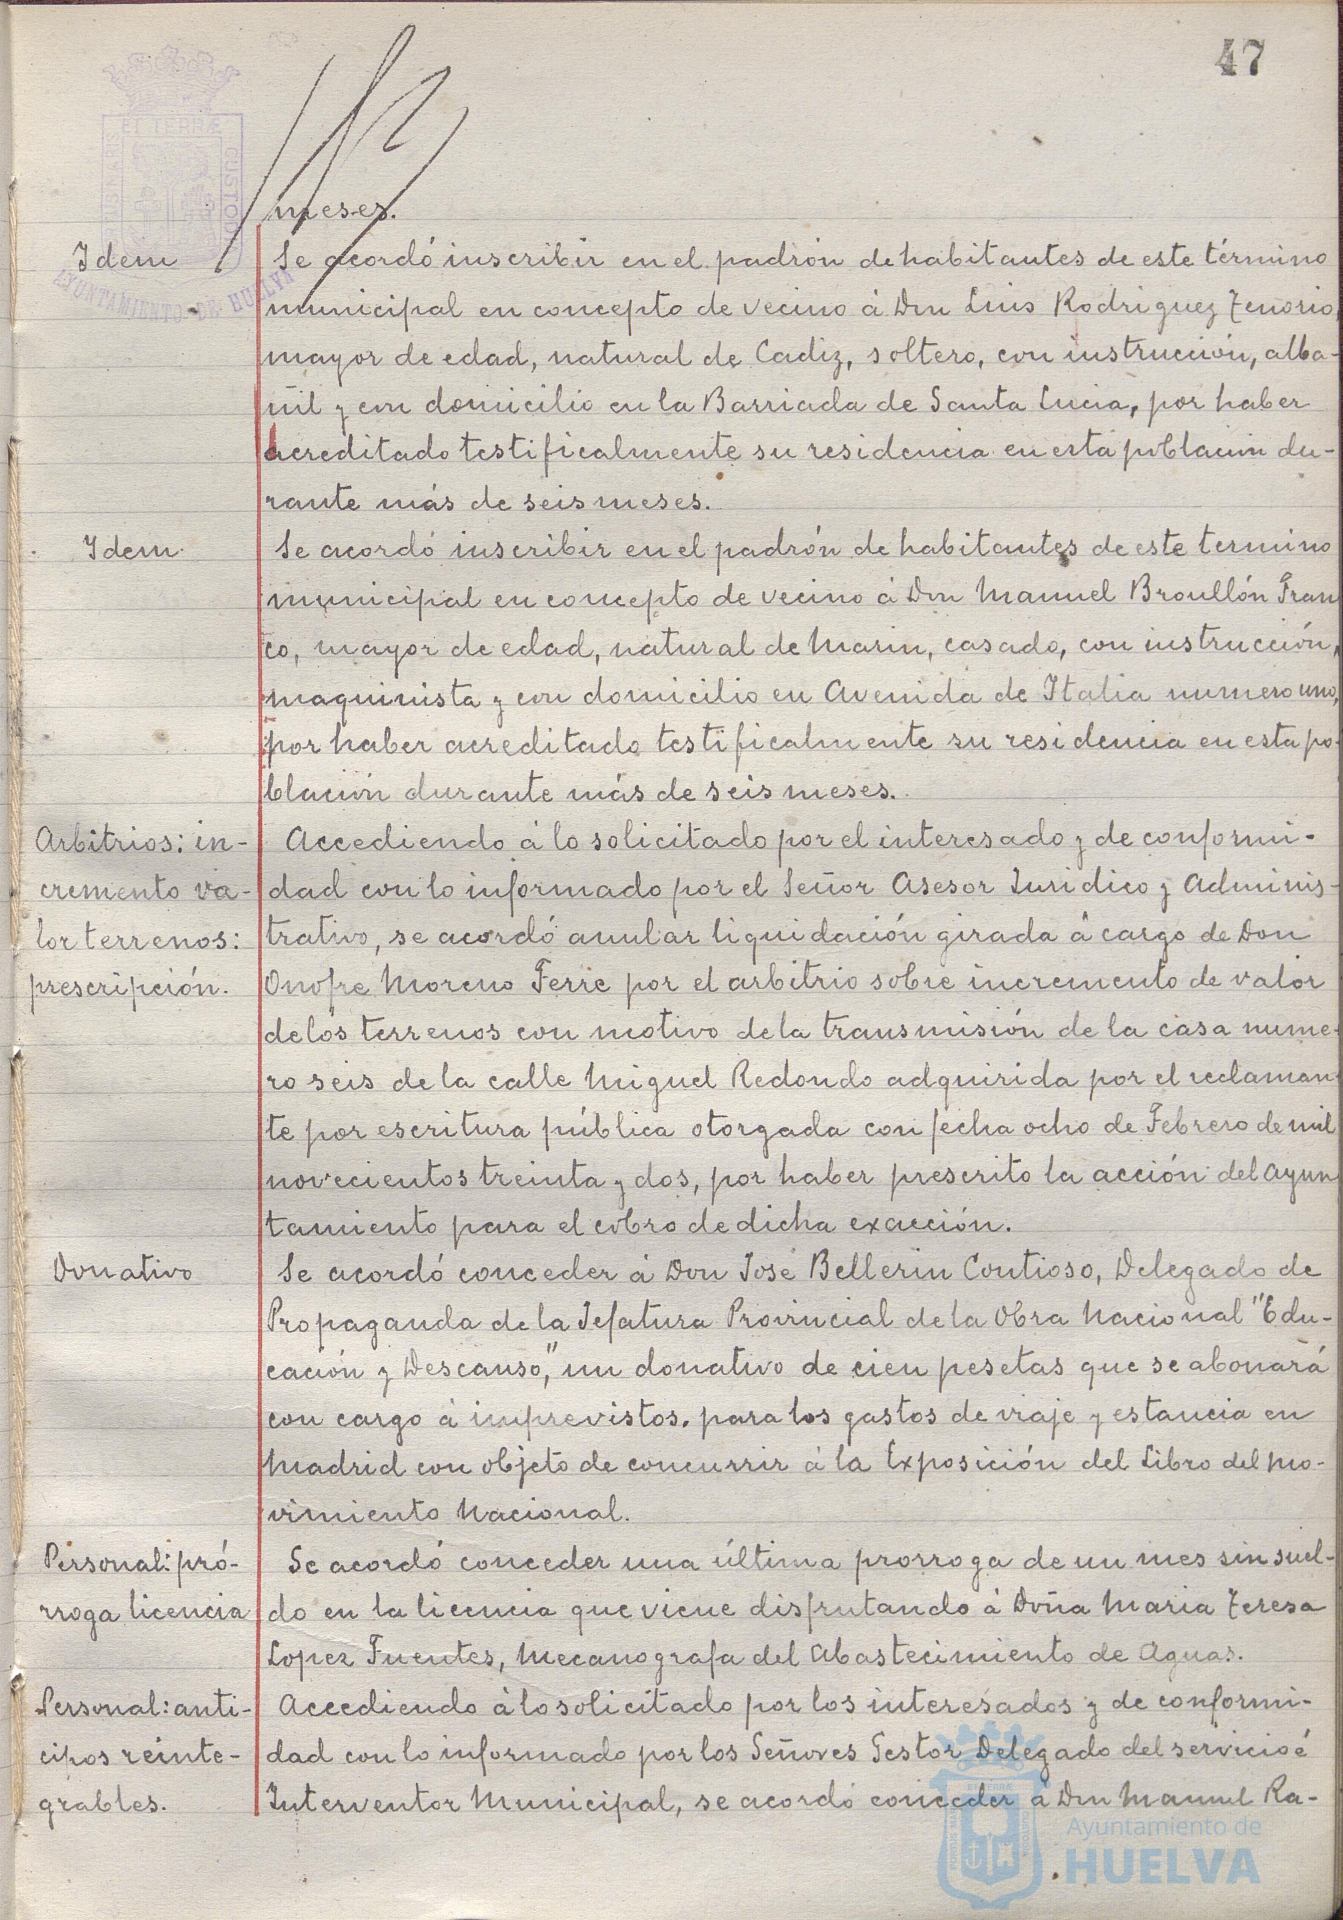 47
meses.
Idem
Se acordó inscribir en el padrón de habitantes de este término
municipal en concepto de vecino á Don Luis Rodriguez Tenorio,
mayor de edad, natural de Cadiz, soltero, con instrucción, alba-
ñil y con domicilio en la Barriada de Santa Lucia, por haber
acreditado testificalmente su residencia en esta poblacion du-
rante más de seis meses.
Idem
Se acordó inscribir en el padrón de habitantes de este termino
municipal en concepto de vecino á Don Manuel Broullón Fran
co, mayor de edad, natural de Marin, casado, con instrucción,
maquinista y con domicilio en Avenida de Italia numero uno,
por haber acreditado testificalmente su residencia en esta po-
blación durante más de seis meses.
Arbitrios: in-
cremento va-
lor terrenos:
prescripción.
Accediendo á lo solicitado por el interesado y de conformi-
dad con lo informado por el Señor Asesor Juridico y Adminis-
trativo, se acordó anular liquidación girada á cargo de Don
Onofre Moreno Ferre por el arbitrio sobre incremento de valor
de los terrenos con motivo de la transmisión de la casa nume-
ro seis de la calle Miguel Redondo adquirida por el reclaman
te por escritura pública otorgada con fecha ocho de Febrero de mil
novecientos treinta y dos, por haber prescrito la acción del Ayun
tamiento para el cobro de dicha exacción.
Donativo
Se acordó conceder á Don José Bellerin Contioso, Delegado de
Propaganda de la Jefatura Provincial de la Obra Nacional "Edu-
cación y Descanso", un donativo de cien pesetas que se abonará
con cargo á imprevistos. para los gastos de viaje y estancia en
Madrid con objeto de concurrir á la Exposición del Libro del Mo-
vimiento Nacional.
Personal: pró-
rroga licencia
Se acordó conceder una última prorroga de un mes sin suel-
do en la licencia que viene disfrutando á Doña Maria Teresa
Lopez Fuentes, Mecanografa del Abastecimiento de Aguas.
Personal: anti-
cipos reinte-
grables.
Accediendo á lo solicitado por los interesados y de conformi-
dad con lo informado por los Señores Gestor Delegado del servicio é
Interventor Municipal, se acordó conceder á Don Manuel Ra-
ET TERRÆ
CUSTODI
AYUNTAMIENTO DE HUELVA
Ayuntamiento de
HUELVA